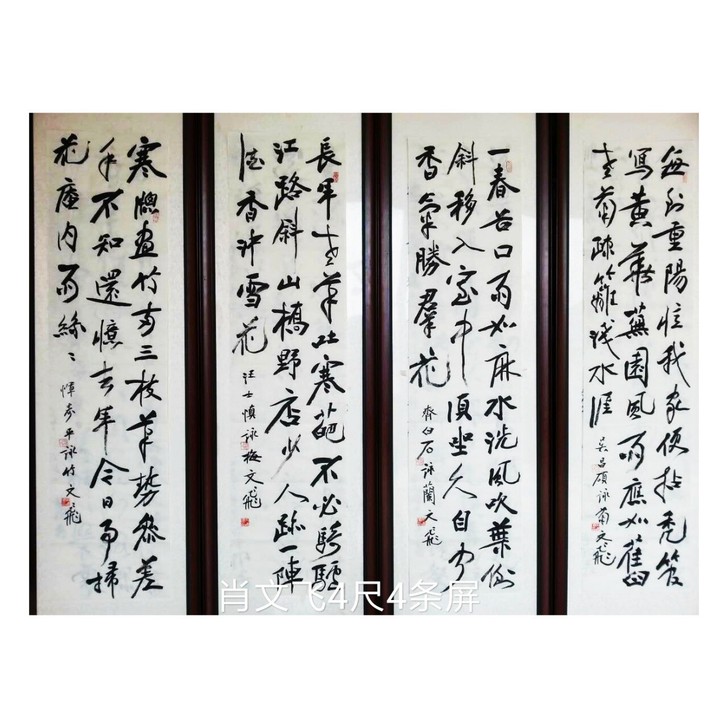 每到重陽憶我家便拈秃管
寫黄華蕪園風雨應如舊
老菊疎籬浅水涯
吴昌碩詠菊文飛
一春谷口雨如麻水洗風吹葉倒
斜移入室中須坐久自
香氣勝羣花
齊白石詠蘭文飛
長年老筆吐寒葩不必騎驢
江路斜山橋野店少人跡一陣
清香冲雪花
汪士慎詠梅文飛
寒牕畫竹两三枝筆势參差
手不知還憶去年今日雨掃
花庵内雨絲〻
惲寿平詠竹文飛
肖文飞4尺4条屏